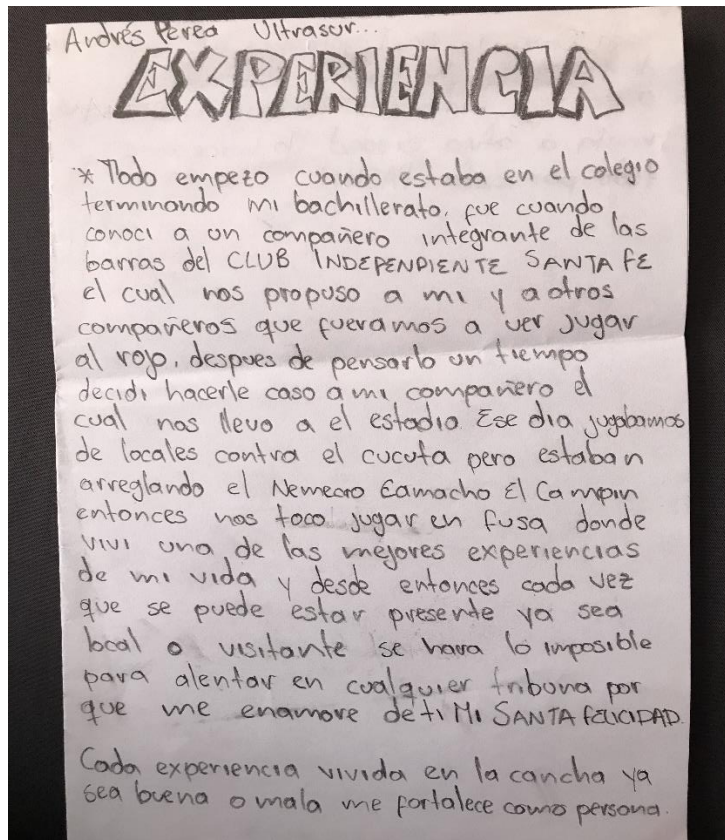 Andrés Perea Ultrasur...
EXPERIENCIA
* Todo empezo cuando estaba en el colegio
terminando mi bachillerato, fue cuando
conoci a un compañero integrante de las
barras del CLUB INDEPENDIENTE SANTA FE
el cual nos propuso a mi y a otros
compañeros que fueramos a ver jugar
al rojo, despues de pensarlo un tiempo
decidi hacerle caso a mi compañero el
cual nos llevo a el estadio Ese dia jugabamos
de locales contra el cucuta pero estaban
arreglando el Nemecio Camacho El Campin
entonces nos toco jugar en fusa donde
vivi una de las mejores experiencias
de mi vida y desde entonces cada vez
que se puede estar presente ya sea
local o visitante se hara lo imposible
para alentar en cualquier tribuna por
que me enamore de ti MI SANTA FELICIDAD.
Cada experiencia vivida en la cancha ya
sea buena o mala me fortalece como persona.